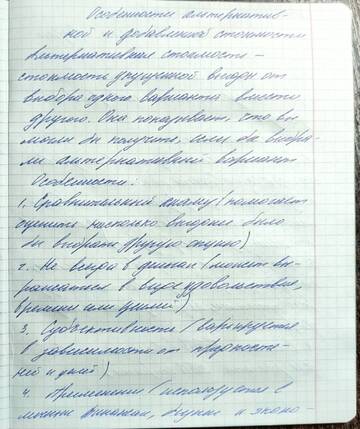 Особенности альтернатив-
ной и добавленной стоимости
Альтернативная стоимость –
стоимость упущенной выгоды от
выбора одного варианта вместо
другого. Она показывает, что вы
могли бы получить, если бы выбра-
ли альтернативный вариант
Особенности:
1. Сравнительный анализ (помогает
оценить насколько выгоднее было
бы выбрать другую опцию)
2. Не всегда в деньгах (может вы-
ражаться в виде удовольствия,
времени или усилий)
3. Субъективность (варьируется
в зависимости от предпочте-
ний и целей)
4. Применение (используется в
личных финансах, бизнесе и эконо-